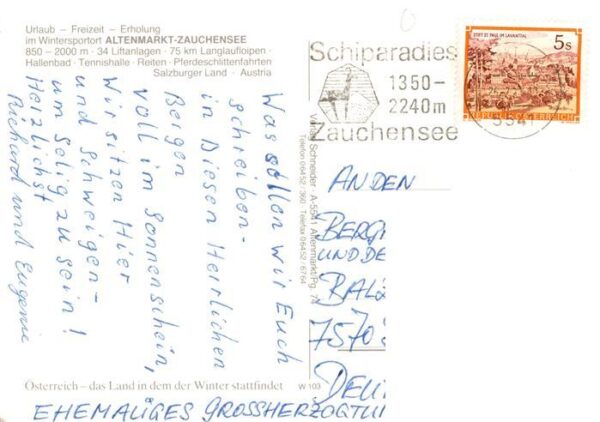 Urlaub – Freizeit – Erholung
im Wintersportort ALTENMARKT-ZAUCHENSEE
850 – 2000 m · 34 Liftanlagen · 75 km Langlaufloipen ·
Hallenbad · Tennishalle · Reiten · Pferdeschlittenfahrten
Salzburger Land · Austria
Was sollen wir Euch
schreiben-
in Diesen Herrlichen
Bergen
voll im Sonnenschein,
Wir sitzen Hier
und schweigen-
um selig zu sein!
Herzlichst
Richard und Eugenie
Österreich – das Land in dem der Winter stattfindet
W 103
Schneider · A-5541 Altenmarkt/Pg. 74
Telefon 06452 / 360 · Telefax 06452 / 6764
Schiparadies
1350–
2240m
Zauchensee
STIFT ST. PAUL IM LAVANTTAL
5s
REPUBLIK ÖSTERREICH
AN DEN
BERG
UND DE
BAL
7570
DEU
EHEMALIGES GROSSHERZOGTU